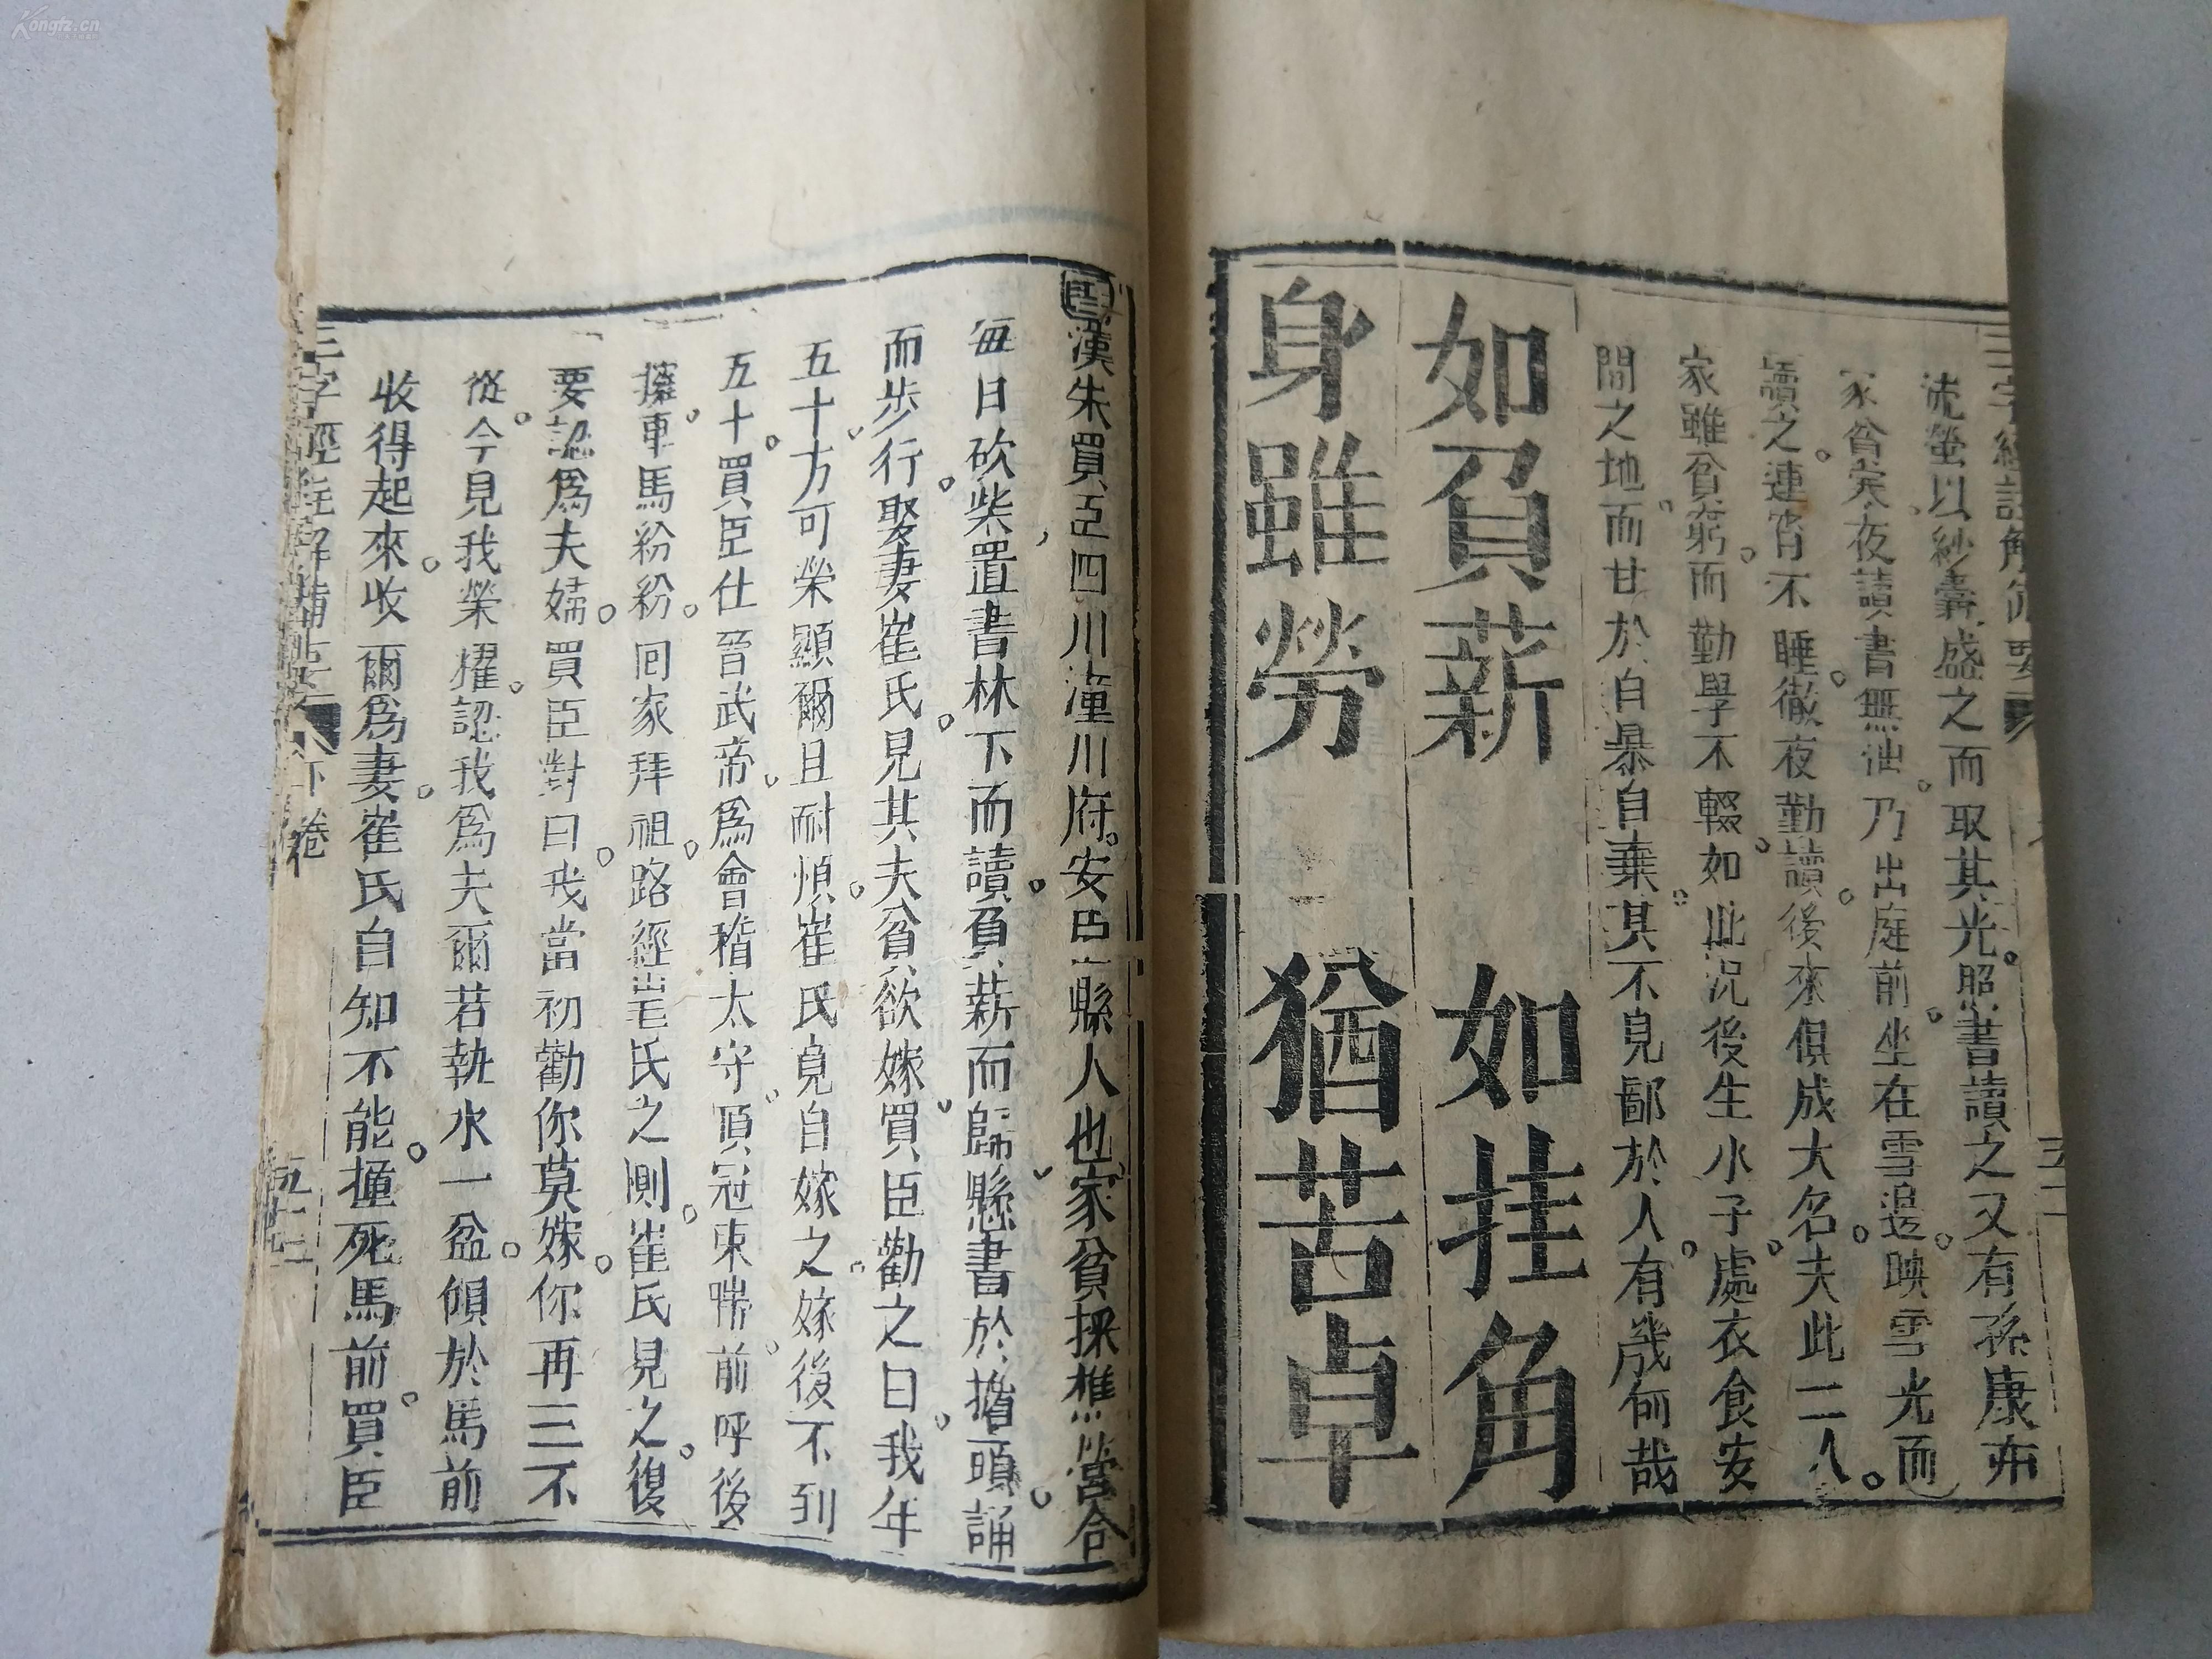 Kongfz.cn
流螢以紗囊盛之而取其光照書讀之又有孫康亦
家貧矣夜讀書無油乃出庭前坐在雪邊映雪光而
讀之連宵不睡徹夜勤讀後來俱成大名夫此二人
家雖貧窮而勤學不輟如此况後生小子處衣食安
閒之地而甘於自暴自棄其不見鄙於人有幾何哉
如負薪 如挂角
身雖勞 猶苦卓
漢朱買臣四川潼川府安縣人也家貧採樵營合
每日砍柴置書林下而讀負薪而歸懸書於擔頭誦
而步行娶妻崔氏見其夫貧欲嫁買臣勸之曰我年
五十方可榮顯爾且耐煩崔氏竟自嫁之嫁後不到
五十買臣仕晉武帝為會稽太守頂冠束帶前呼後
擁車馬紛紛回家拜祖路經崔氏之側崔氏見之復
要認為夫婦買臣對曰我當初勸你莫嫁你再三不
從今見我榮耀認我為夫爾若執水一盆傾於馬前
收得起來收爾為妻崔氏自知不能撞死馬前買臣
三字經註解備要 下卷